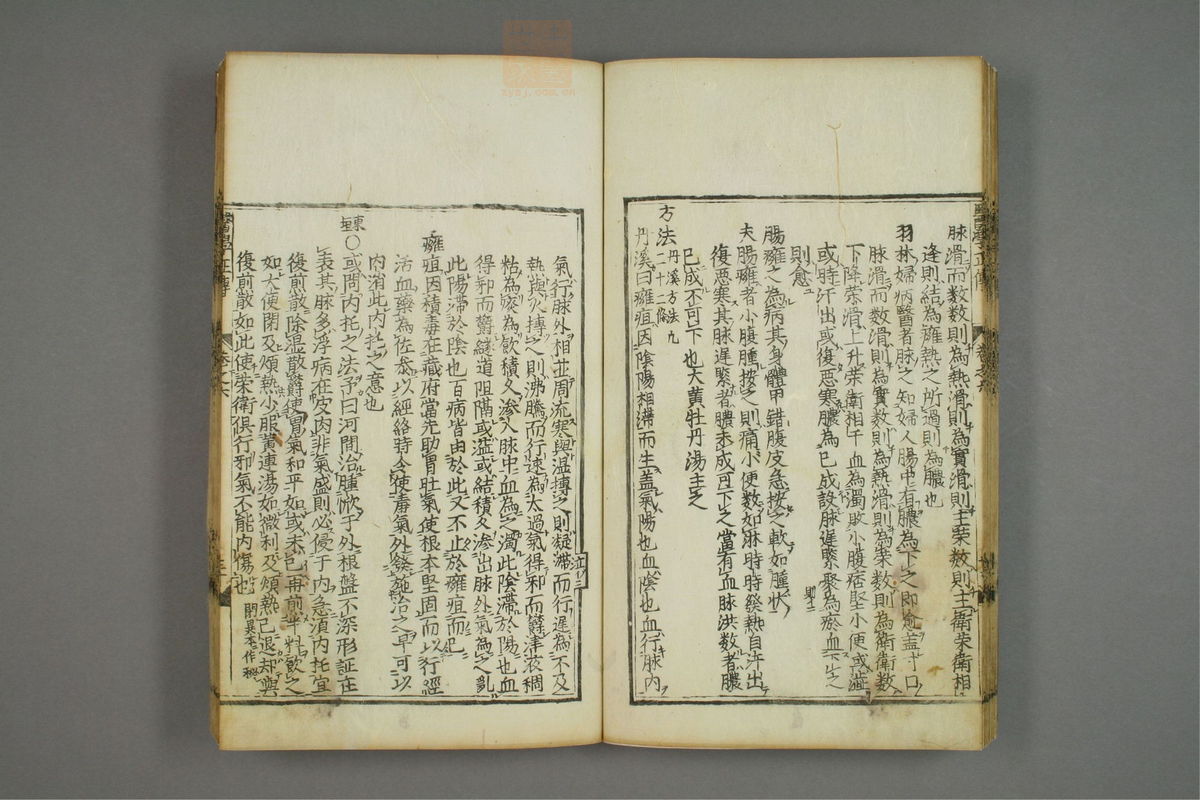 脉滑而数数則為熱滑則為實滑則主榮数則主衛榮衛相
逢則結為癰熱之所過則為膿也
羽林婦病醫者脉之知婦人腸中有膿為下之即愈盖寸口
脉滑而数滑則為實数則為熱滑則為榮数則為衛衛数
下降榮滑上升榮衛相干血為濁敗小腹痞堅小便或澁
或時汗出或復惡寒膿為已成設脉遅緊聚為瘀血下之
則愈
腸癰之為病其身體甲錯腹皮急按之軟如腫状
夫腸癰者小腹腫按之則痛小便数如淋時時發熱自汗出
復惡寒其脉遅緊者膿未成可下之當有血脉洪数者膿
已成不可下也大黄牡丹湯主之
方法
丹溪方法九
二十二條
丹溪曰癰疽因陰陽相滞而生盖氣陽也血陰也血行脉内
氣行脉外相並周流寒與湿搏之則凝滞而行遅為不及
熱與火搏之則沸騰而行速為太過氣得邪而欝津液稠
粘為痰為飲積久滲入脉中血為之濁此陰滞於陽也血
得邪而欝隧道阻隔或溢或結積久滲出脉外氣為之亂
此陽滞於陰也百病皆由於此又不止於癰疽而已
癰疽因積毒在藏府當先助胃壮氣使根本堅固而以行經
活血藥為佐参以經絡時令使毒氣外發施治之早可以
内消此内托之意也
○或問内托之法予曰河間治腫焮于外根盤不深形証在
表其脉多浮病在皮肉非氣盛則必侵于内急須内托宜
復煎散除湿散欝使胃氣和平如或未已再煎半料飲之
如大便閉及煩熱少服黄連湯如微利及煩熱已退却與
復煎散如此使榮衛俱行邪氣不能内傷也
閉異本作秘